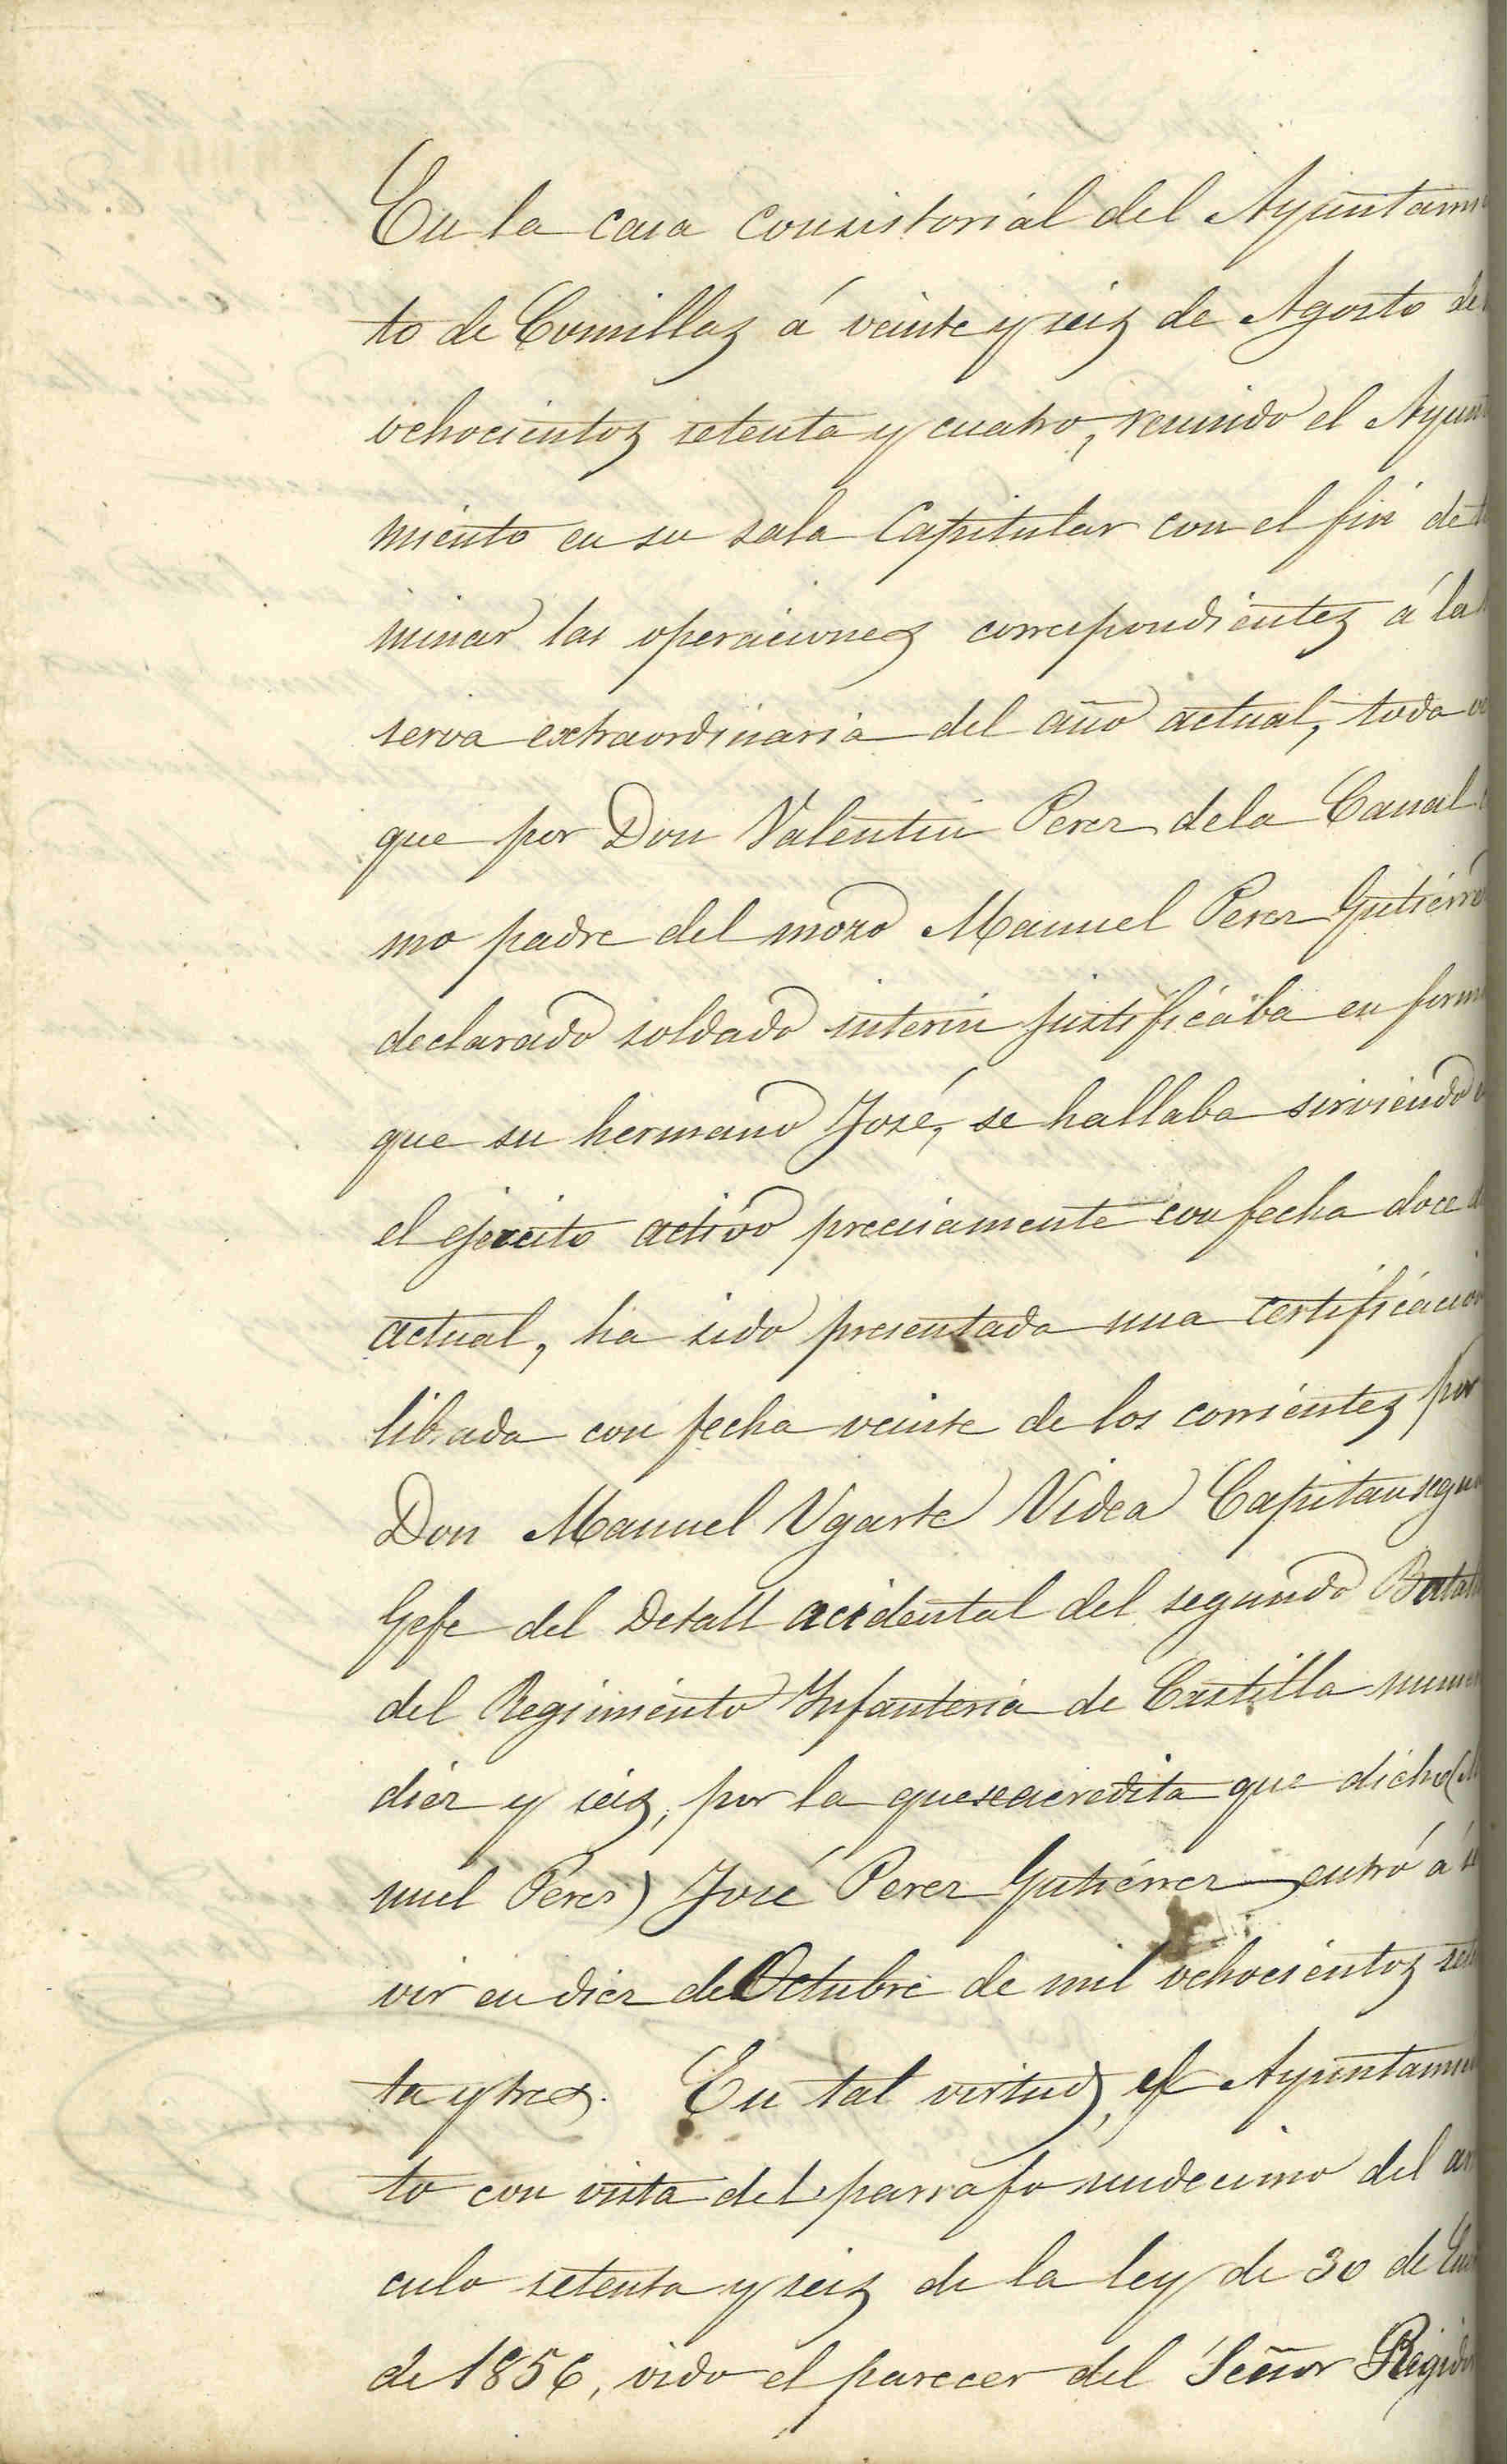 En la casa consistorial del Ayuntamien
to de Comillas á veinte y seis de Agosto de
ochocientos setenta y cuatro, reunido el Ayunta
miento en su sala Capitular con el fin de ter
minar las operaciones correspondientes á la
serva extraordinaria del año actual, toda vez
que por Don Valentin Perez dela Canal
mo padre del mozo Manuel Perez Gutierrez
declarado soldado interin justificaba en forma
que su hermano José, se hallaba sirviendo en
el ejercito activo precisamente con fecha doce
actual, ha sido presentada una certificacion
librada con fecha veinte de los corrientes por
Don Manuel Ugarte Videa Capitan segun
Gefe del Detall acidental del segundo Batallo
del Regimiento Infanteria de Castilla nume
diez y seis, por la que se acredita que dicho (Ma
nuel Pérez) José Perez Gutiérrez entró á ser
vir en diez de Octubre de mil ochocientos seten
ta y tres. En tal virtud, el Ayuntamien
to con vista del parrafo undecimo del arti
culo setenta y seis de la ley de 30 de Enero
de 1856, oido el parecer del Señor Regidor